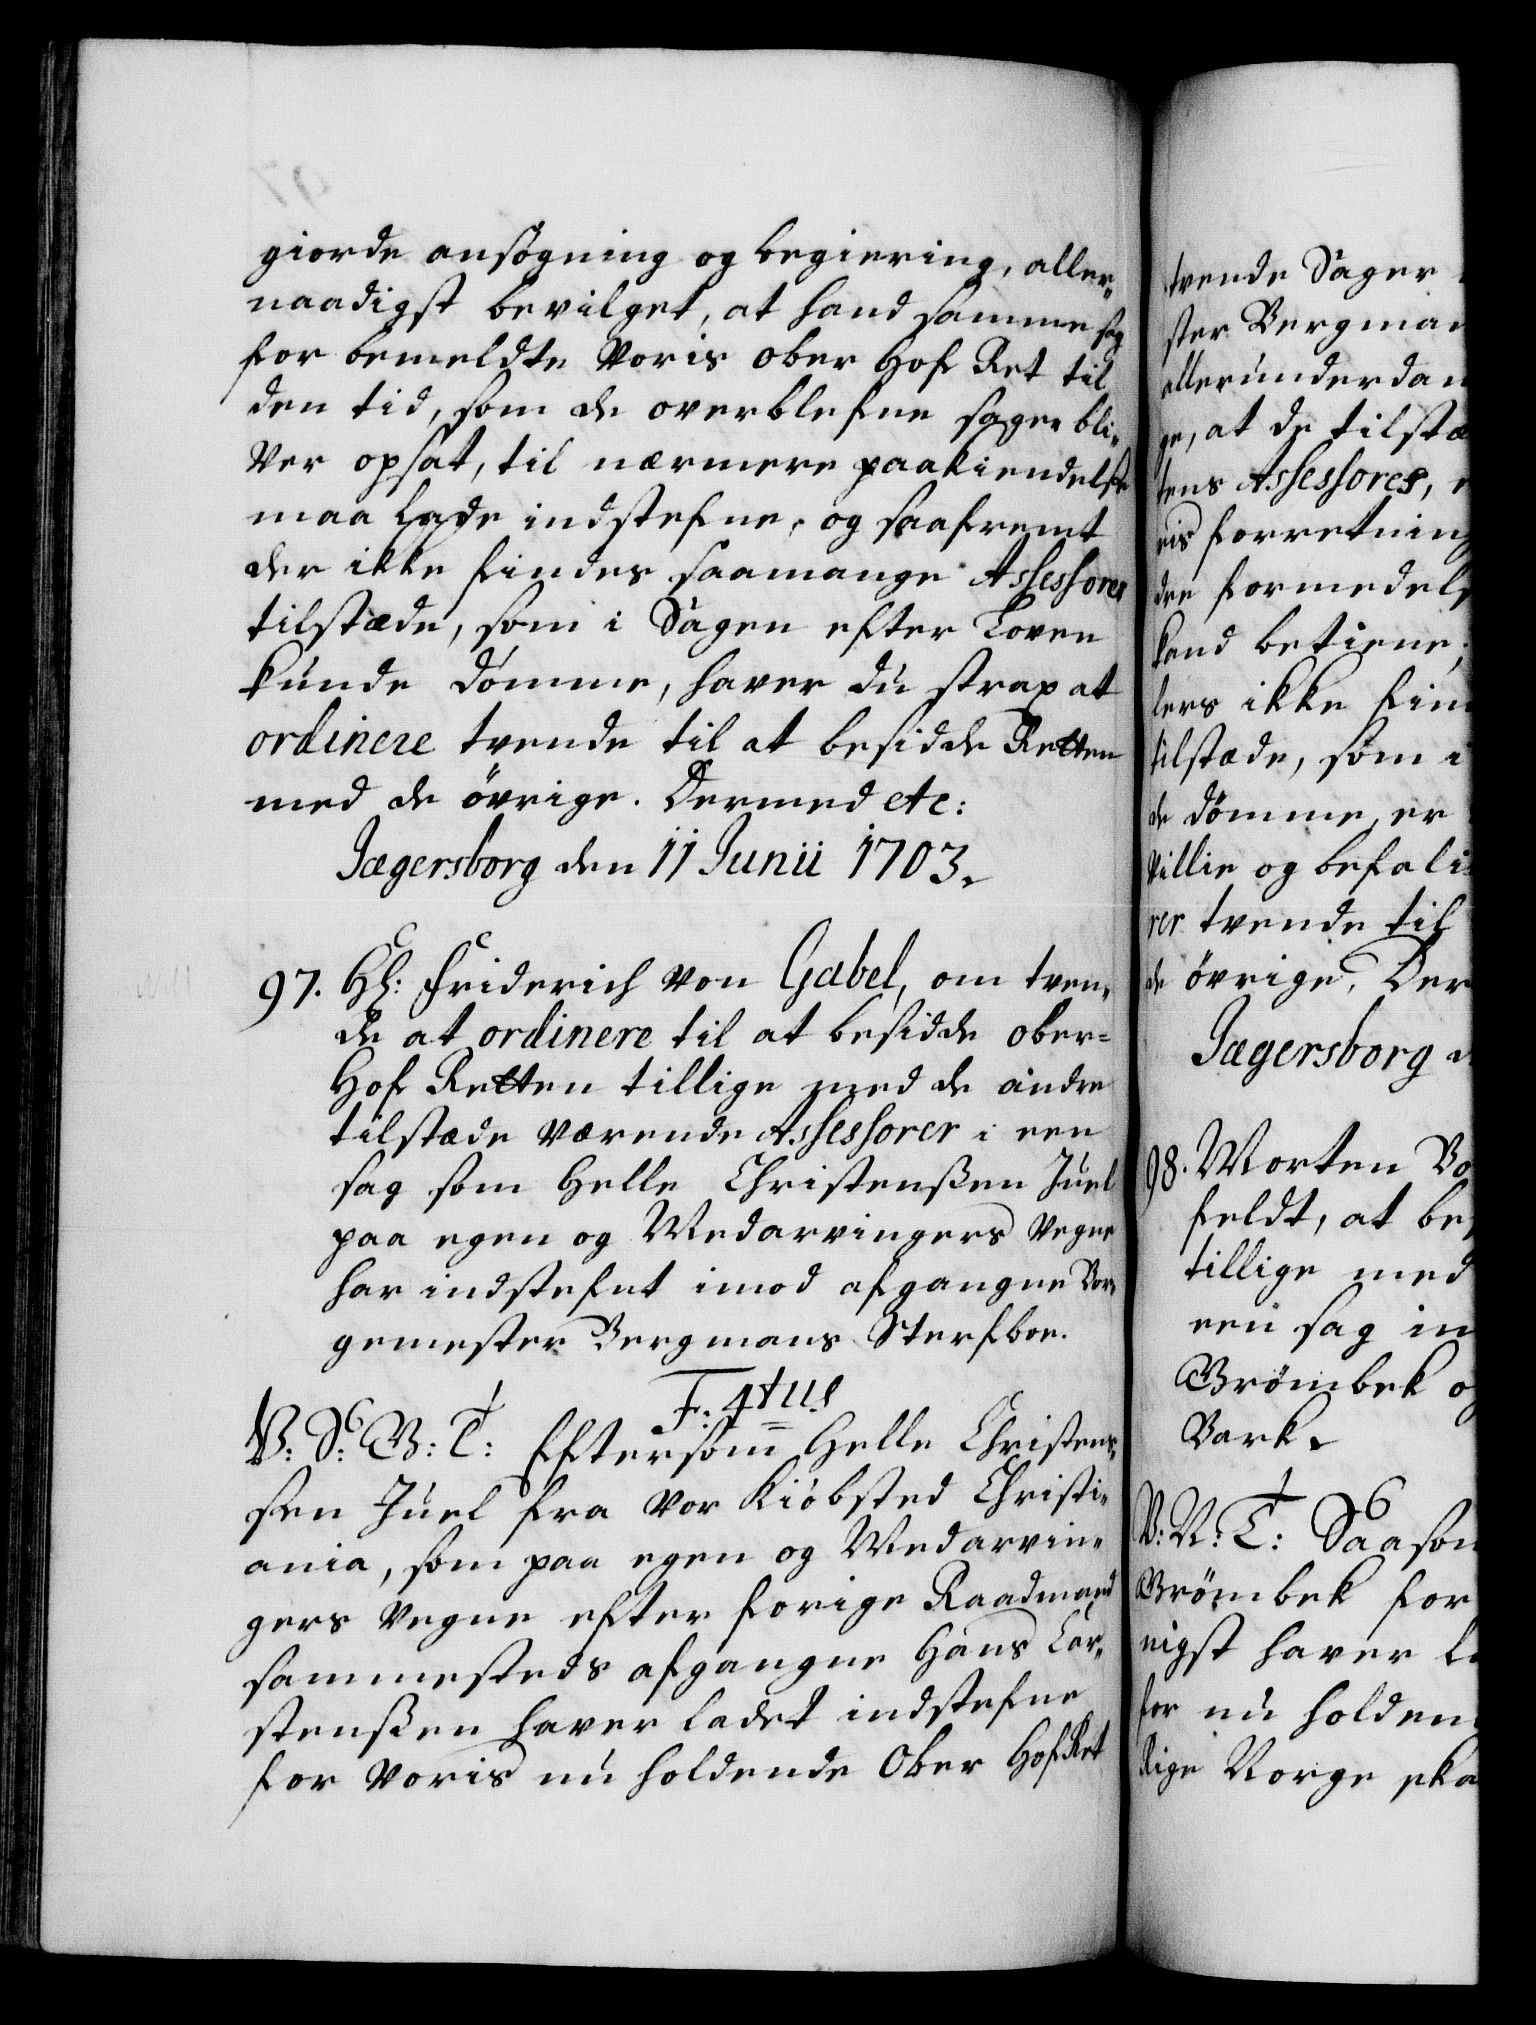 giorde ansøgning og begiering, aller-
naadigst bevilget, at hand samme sag
for bemeldte Voris Ober Hof Ret til
den tid, som de overblefne sager bli-
ver opsat, til nærmere paakiendelse
maa lade indstefne, og saafremt
der ikke findes saamange Assessores
tilstæde, som i Sagen efter Loven
kunde dømme, haver du strax at
ordinere tvende til at besidde Retten
med de øvrige. Dermed etc:
Jægersborg den 11 Junii 1703.
97. Hl: Friderich von Gabel, om tven-
de at ordinere til at besidde ober-
Hof Retten tillige med de andre
tilstæde værende Assessorer i een
sag som Helle Christenßen Juel
paa egen og Medarvingers vegne
har indstefnt imod afgangne Bor-
gemester Bergmans Sterfboe.
F: 4tus
V: S: G: V: T: Eftersom Helle Christens-
sen Juel fra vor Kiøbsted Christi-
ania, som paa egen og Medarvin-
gers Vegne efter forige Raadmand
sammesteds afgangne Hans Car-
stenßen haver ladet indstefne
for Voris nu holdende Ober Hof Ret
tvende Sager
ster Bergman
allerunderdan
ge, at de tilstæ
tens Assessores,
eis forretning
dre formedels
kand betiene,
lers ikke fin
tilstæde, som i
de dømme, er
Villie og befali
rer tvende til
de øvrige. Der
Jægersborg d
98. Morten
feldt, at be
tillige med
een sag in
Brømbek o
Bark.
V: N: T: G Saasom
Brømbek for
nigst haver l
for nu holden
Rige Norge ska